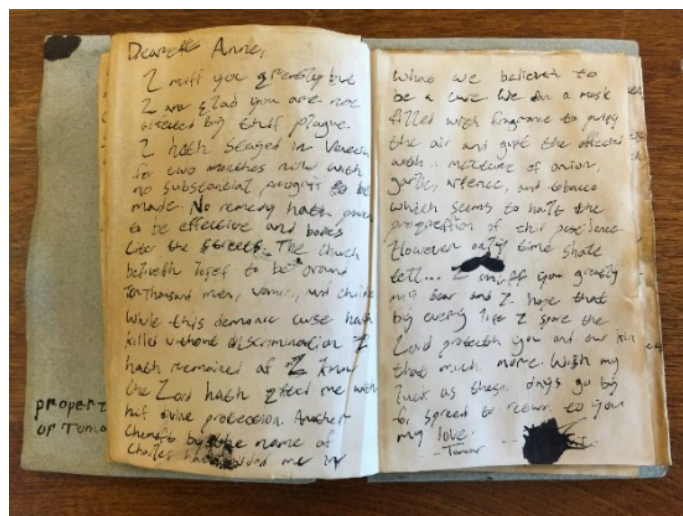 Dearest Anne,
I miff you greatly but
I am glad you are not
affected by thif plague.
I hath stayed in Venecia
for two monthes now with
no substancial progrif to be
made. No remedy hath proven
to be effective and bodies
liter the streets. The church
belivith losef to be around
ten thousand men, women, and childr
While this demonic curse hath
killed without discrimination I
hath remained as I know
the Lord hath gifted me with
hif divine protection. Another
chemist by the name of
Charles hath aided me in
what we believeth to
be a cure. We don a mask
filled with fragrance to purify
the air and gift the affected
with a mixture of onion,
garlic, arfenic, and tobacco
which seems to halt the
progreffion of thif pestilence.
However only time shall
tell... I miff you greatly
my dear and I hope that
by every life I save the
Lord protecth you and our kin
that much more. Wish my
luck as these days go by
for spreed to return to you
my love.
-Tamor
Property
of Tamo